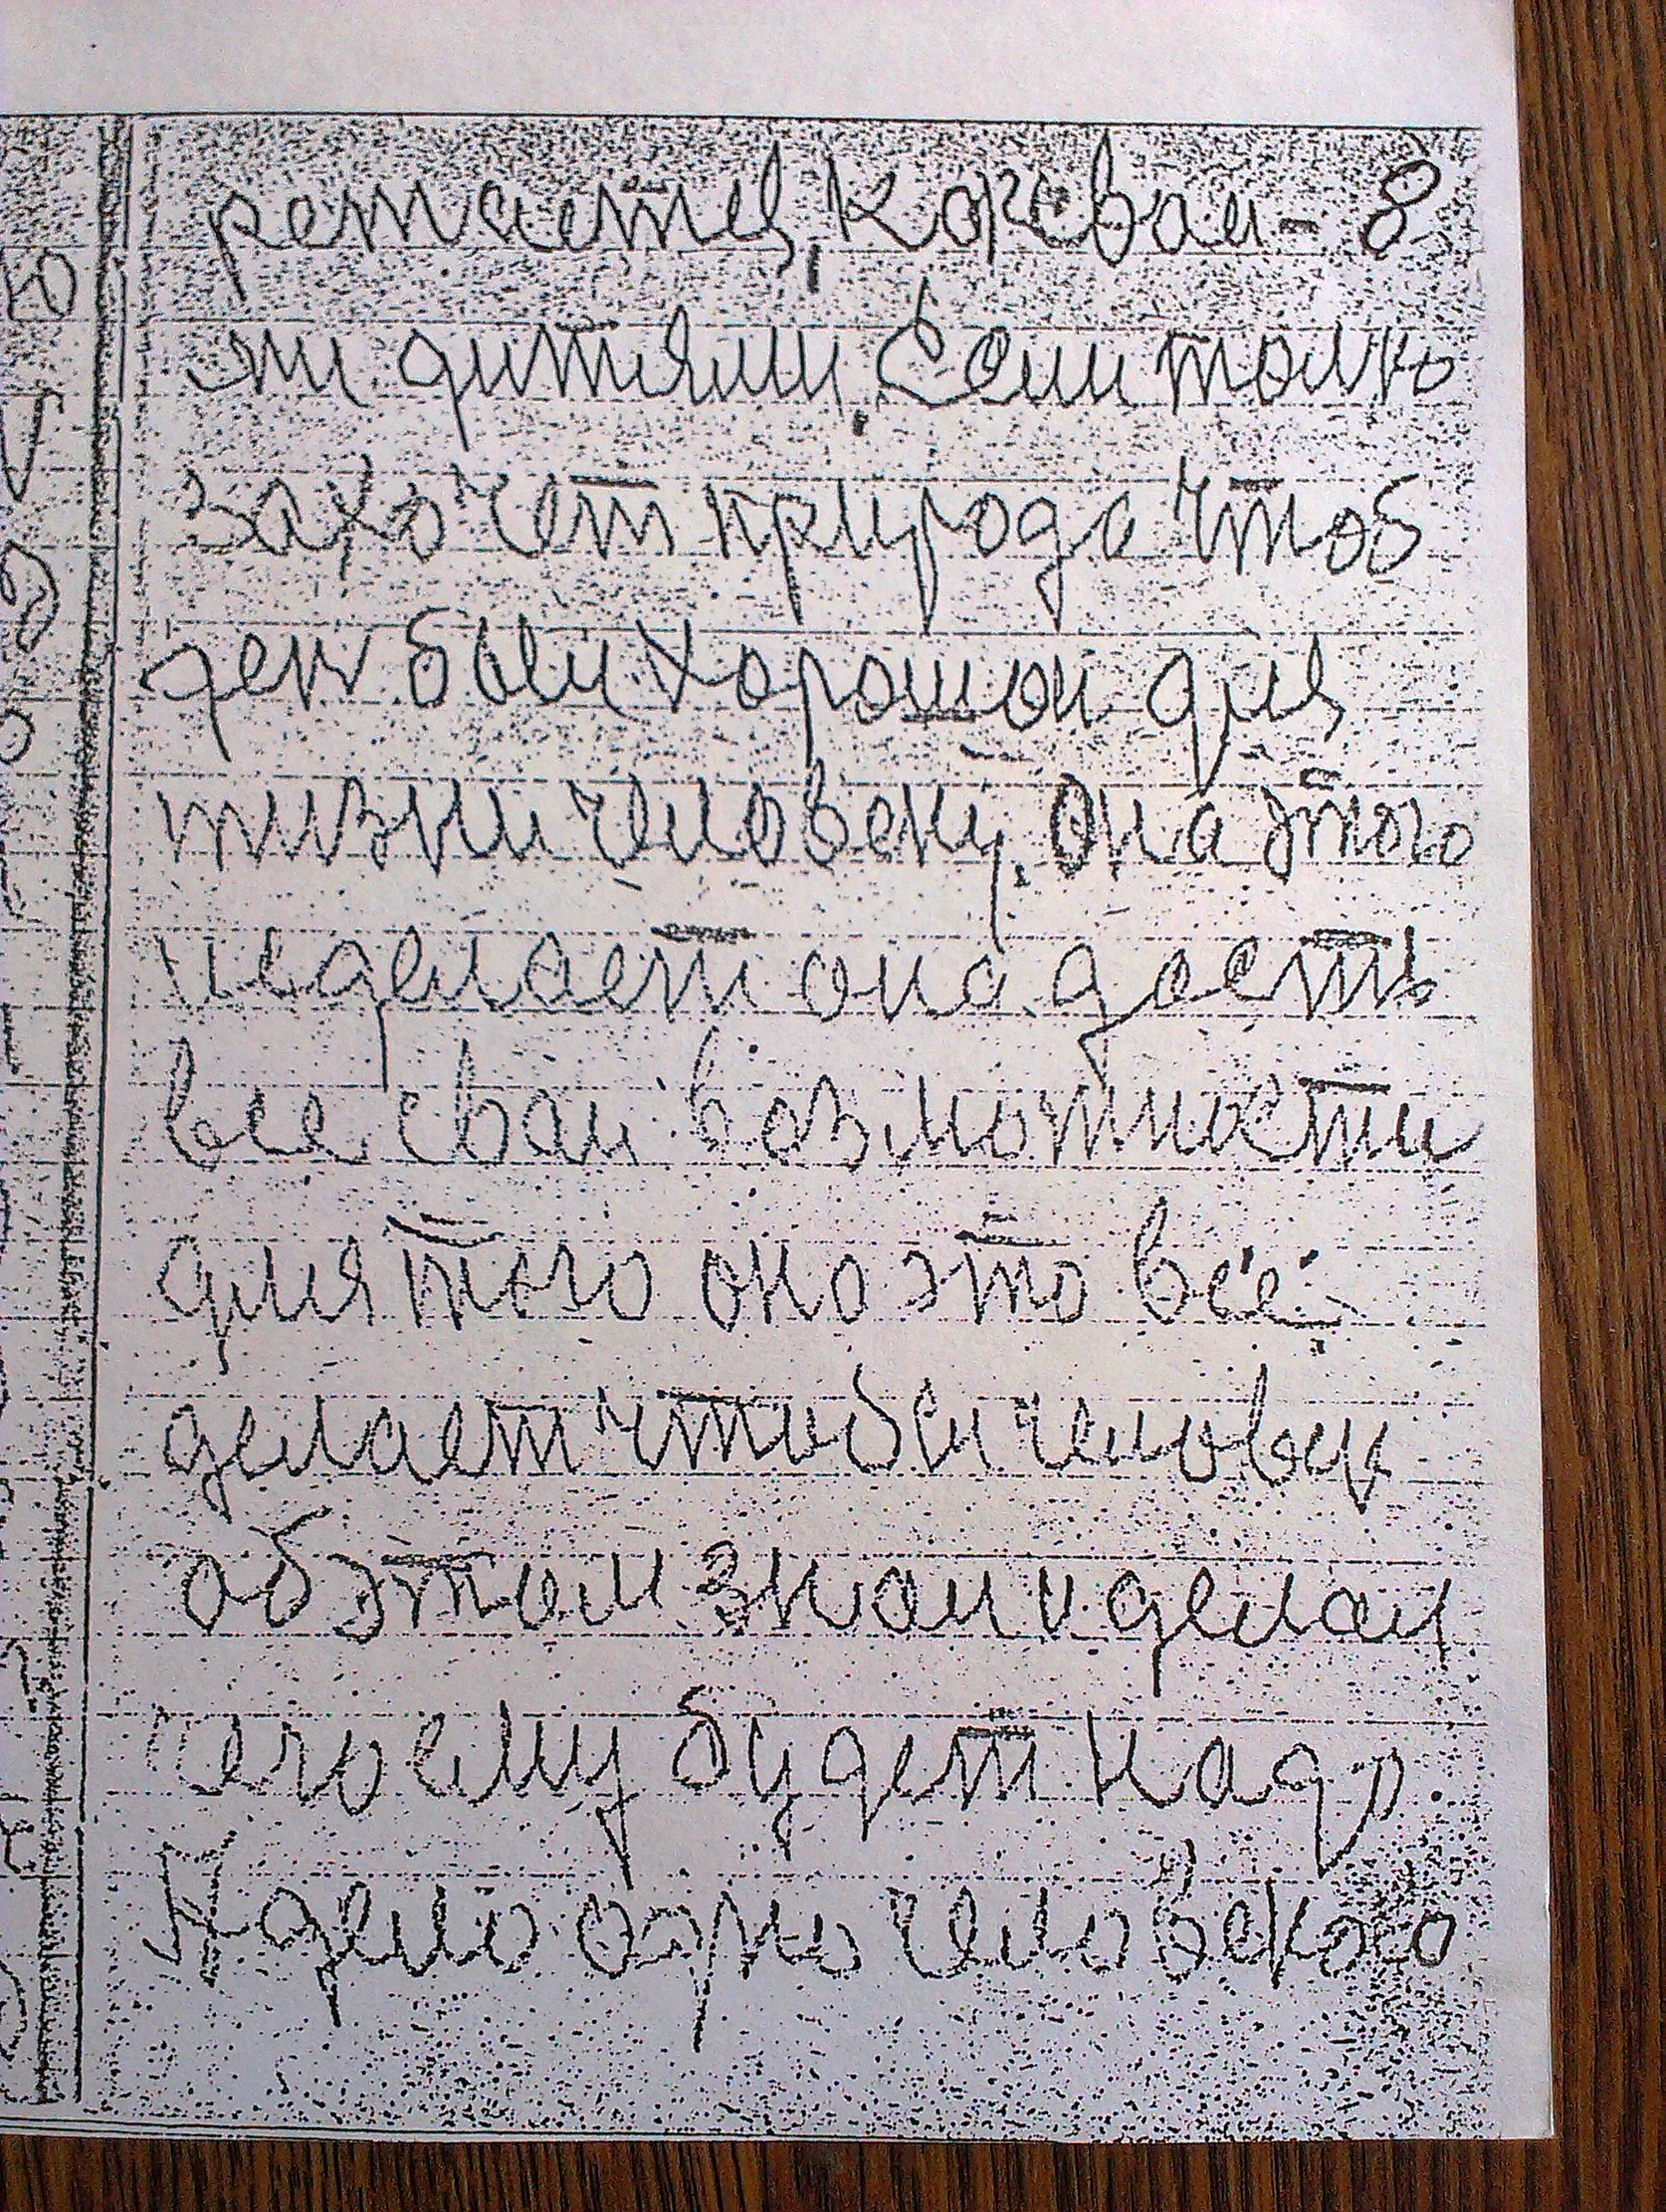 8
ми дитями, Если толко
захочет природа чтоб
ден был хорошои для
жизни человеку, она этого
и сделает она даеть
все сваи возможности
для того она это всё
делает чтобы человек
об этом знал и делал
чего ему будет надо.
Тело одно человекого